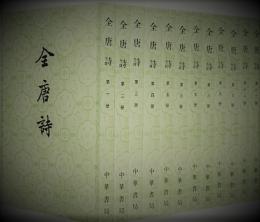 全唐詩
全唐詩
第一册
中華書局
全唐詩
第二册
中華書局
全唐詩
第三册
中華書局
全唐詩
第四册
中華書局
全唐詩
第五册
中華書局
全唐詩
中華書局
全唐詩
中華書局
全唐詩
中華書局
全唐詩
中華書局